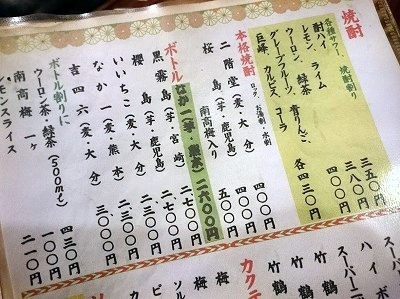 焼酎
各種サワー、焼酎割り
酎ハイ 三五〇円
レモン、ライム 三八〇円
ウーロン、緑茶
グレープフルーツ、青りんご、
巨峰、カルピス、コーラ 各四三〇円
本格焼酎 ロック、お湯割、水割
二階堂(麦・大分) 四〇〇円
桜島(芋・鹿児島) 四〇〇円
南高梅入り 五〇〇円
ボトル
なか(芋・熊本) 二六〇〇円
黒霧島(芋・宮崎) 二七〇〇円
櫻島(芋・鹿児島) 二七〇〇円
いいちこ(麦・大分) 二三〇〇円
なか一(麦・熊本) 二三〇〇円
吉四六(麦・大分) 三〇〇〇円
ボトル割りに
ウーロン茶・緑茶(500ml) 四三〇円
南高梅 一ヶ 一〇〇円
レモンスライス 二一〇円
カクテ
竹鶴
竹鶴
竹鶴
スーパーニ
ハイ
スーパー
ボ
梅
梅
ソル
ピ